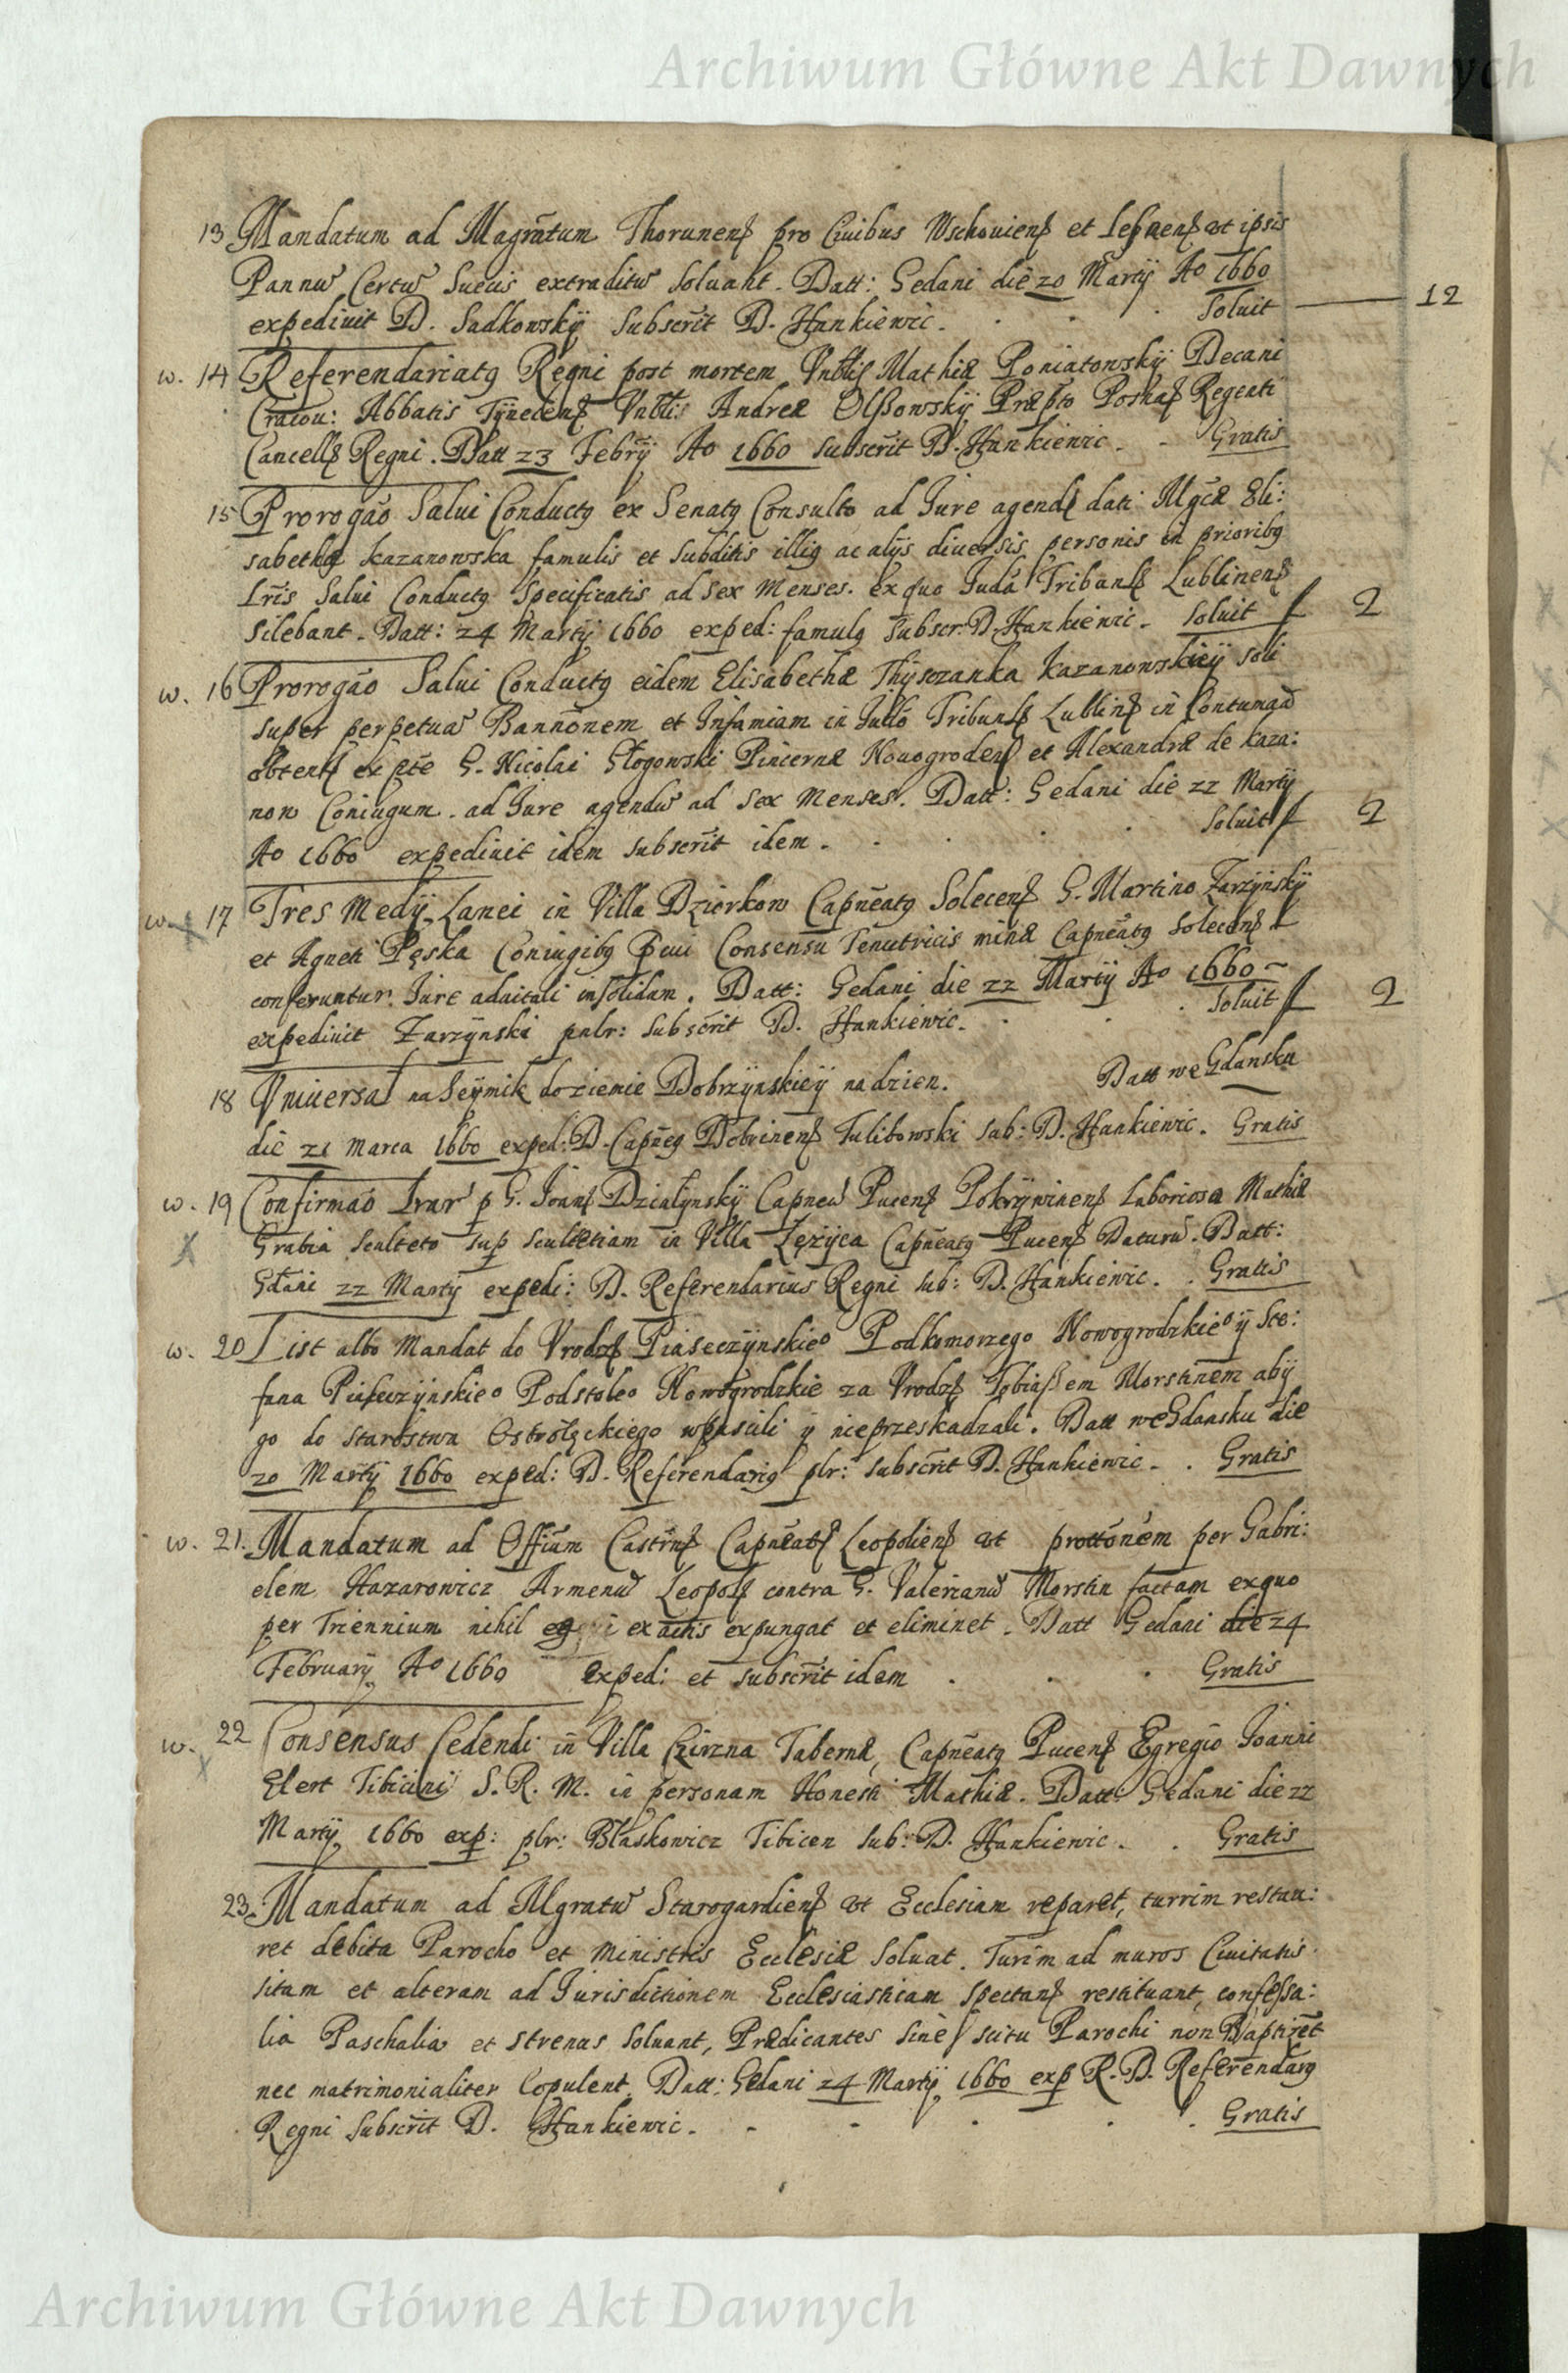 Archiwum Główne Akt Dawnych
13 Mandatum ad Magratum Thorunens pro Ciuibus Wschouiens et Lesnens ut ipsis
Pannu Certu Suecis extraditu soluant. Datt: Gedani die 20 Martij Ao 1660
expediuit D. Sadkowskij Subscrit D. Hankiewic. Soluit 12
w. 14 Referendariatq Regni post mortem Mathiæ Poniatowskij Decani
Cracou: Abbatis Tÿnecens Andreæ Olszowskij Præpto Posnas Regenti
Cancells Regni. Datt 23 Febrij Ao 1660 subscrit D. Hankiewic. Gratis
15 Prorogao Salui Conductq ex Senatq Consulto ad Jure agend dati Mgcæ Eli:
sabethæ Kazanowska famulis et subditis illiq ac alijs diuersis personis in prioribq
Lris Salui Conductq specificatis ad sex Menses. ex quo Juda Tribunls Lublinens
silebant. Datt: 24 Martij 1660 exped: famulq subscr: D. Hankiewic. Soluit f 2
w. 16 Prorogao Salui Conductq eidem Elisabethæ Kazanowskieÿ soli
super perpetua Bannonem et Infamiam in Tribunls Lublins in Contumaa
obtents ex pte G. Nicolai Głogowski Pincernæ Nouogrodens et Alexandræ de Kaza:
now Coniugum. ad Jure agendu ad sex Menses. Datt: Gedani die 22 Martij
Ao 1660 expediuit idem subscrit idem. Soluit f 2
w. 17 Tres Medij Lanei in Villa Dziorkow Capneatq Solecens G. Martino Zarzÿnskij
et Agneti Pęska Coniugibq Consensu Tenutricis Capneatq Solecens
conferuntur. Jure aduitali insolidam. Datt: Gedani die 22 Martij Ao 1660
expediuit Zarzÿnski pnlr: subscrit D. Hankiewic. Soluit f 2
18 Vniuersał na Seÿmik do ziemie Dobrzÿnskieÿ na dzien. Datt we Gdansku
die 21 Marca 1660 exped: D. Capneq Dobrinens Tulibowski sub: D. Hankiewic. Gratis
w. 19 Confirmao Lrar p G. Joans Działynskij Capneu Pucens Pokrzÿwinens Laborioso Mathiæ
Grabia Sculteto sup scultetiam in Villa Lęzÿca Capneatq Pucens Daturu. Datt:
Gdani 22 Martij expedi: D. Referendarius Regni sub: D. Hankiewic. Gratis
w. 20 List albo Mandat do Vrodz Piaseczÿnskieo Podkomorzego Nowogrodzkieo ÿ Ste:
fana Piaseczÿnskieo Podstoleo Nowogrodzkie za Vrodz Tobiaszem Morstinem abÿ
go do starostwa Ostrołęckiego wpuscili ÿ nieprzeskadzali. Datt we Gdansku die
20 Martij 1660 exped: D. Referendariq plr: subscrit D. Hankiewic. Gratis
w. 21. Mandatum ad Offium Castrns Capneats Leopoliens ut prottonem per Gabri:
elem Hazarowicz Armenu Leopols contra G. Valerianu Morstin factam ex quo
per Triennium nihil ex actis expungat et eliminet. Datt Gedani die 24
Februarij Ao 1660 exped: et subscrit idem Gratis
w. 22 Consensus Cedendi in Villa Tabernæ, Capneatq Pucens Egregio Joanni
Elert Tibicini S. R. M. in personam Honesti Mathiæ. Datt: Gedani die 22
Martij 1660 exp: plr: Błaskowicz Tibicen sub: D. Hankiewic. Gratis
23. Mandatum ad Mgratu Starogardiens ut Ecclesiam reparet, turrim restau:
ret debita Parocho et Ministris Ecclesiæ soluat. Turim ad muros Ciuitatis
sitam et alteram ad Jurisdictionem Ecclesiasticam spectans restituant, confessa:
lia Paschalia et strenas soluant, Prædicantes sine scitu Parochi non Baptizet
nec matrimonialiter Copulent. Datt: Gedani 24 Martij 1660 exp R. D. Referendarq
Regni Subscrit D. Hankiewic. Gratis
Archiwum Główne Akt Dawnych